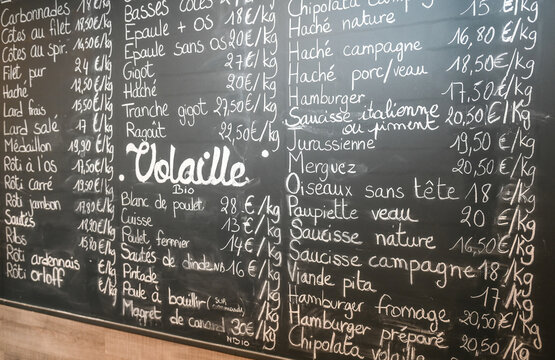 Carbonnades
Côtes au filet 18,50€/kg
Côtes au spir. 16,50€/kg
Filet pur 24 €/kg
Haché
Lard frais
Lard salé 17 €/kg
Médaillon
Rôti à l'os
Rôti carré
Rôti jambon
Sautés
Ribs
Rôti ardennais
Rôti orloff
Basses côtes
Epaule + os 18€/kg
Epaule sans os 20€/kg
Gigot 27€/kg
Haché 20€/kg
Tranche gigot 27,50€/kg
Ragoût 22,50€/kg
Volaille
Bio
Blanc de poulet 28 €/kg
Cuisse 13€/kg
Poulet fermier 14€/kg
Sautés de dinde NB 16€/kg
Pintade
Poule à bouillir (
Magret de canard 30€/kg
Chipolata campagne 15 €/kg
Haché nature
Haché campagne 16,80 €/kg
Haché porc/veau 18,50€/kg
Hamburger 17,50€/kg
Saucisse italienne 20,50€/kg
ou piment
Jurassienne 19,50 €/kg
Merguez 20,50€/kg
Oiseaux sans tête 18 €/kg
Paupiette veau 20 €/kg
Saucisse nature 16,50€/kg
Saucisse campagne 18 €/kg
Viande pita 17 €/kg
Hamburger fromage
Hamburger préparé 20,50
Chipolata volaille